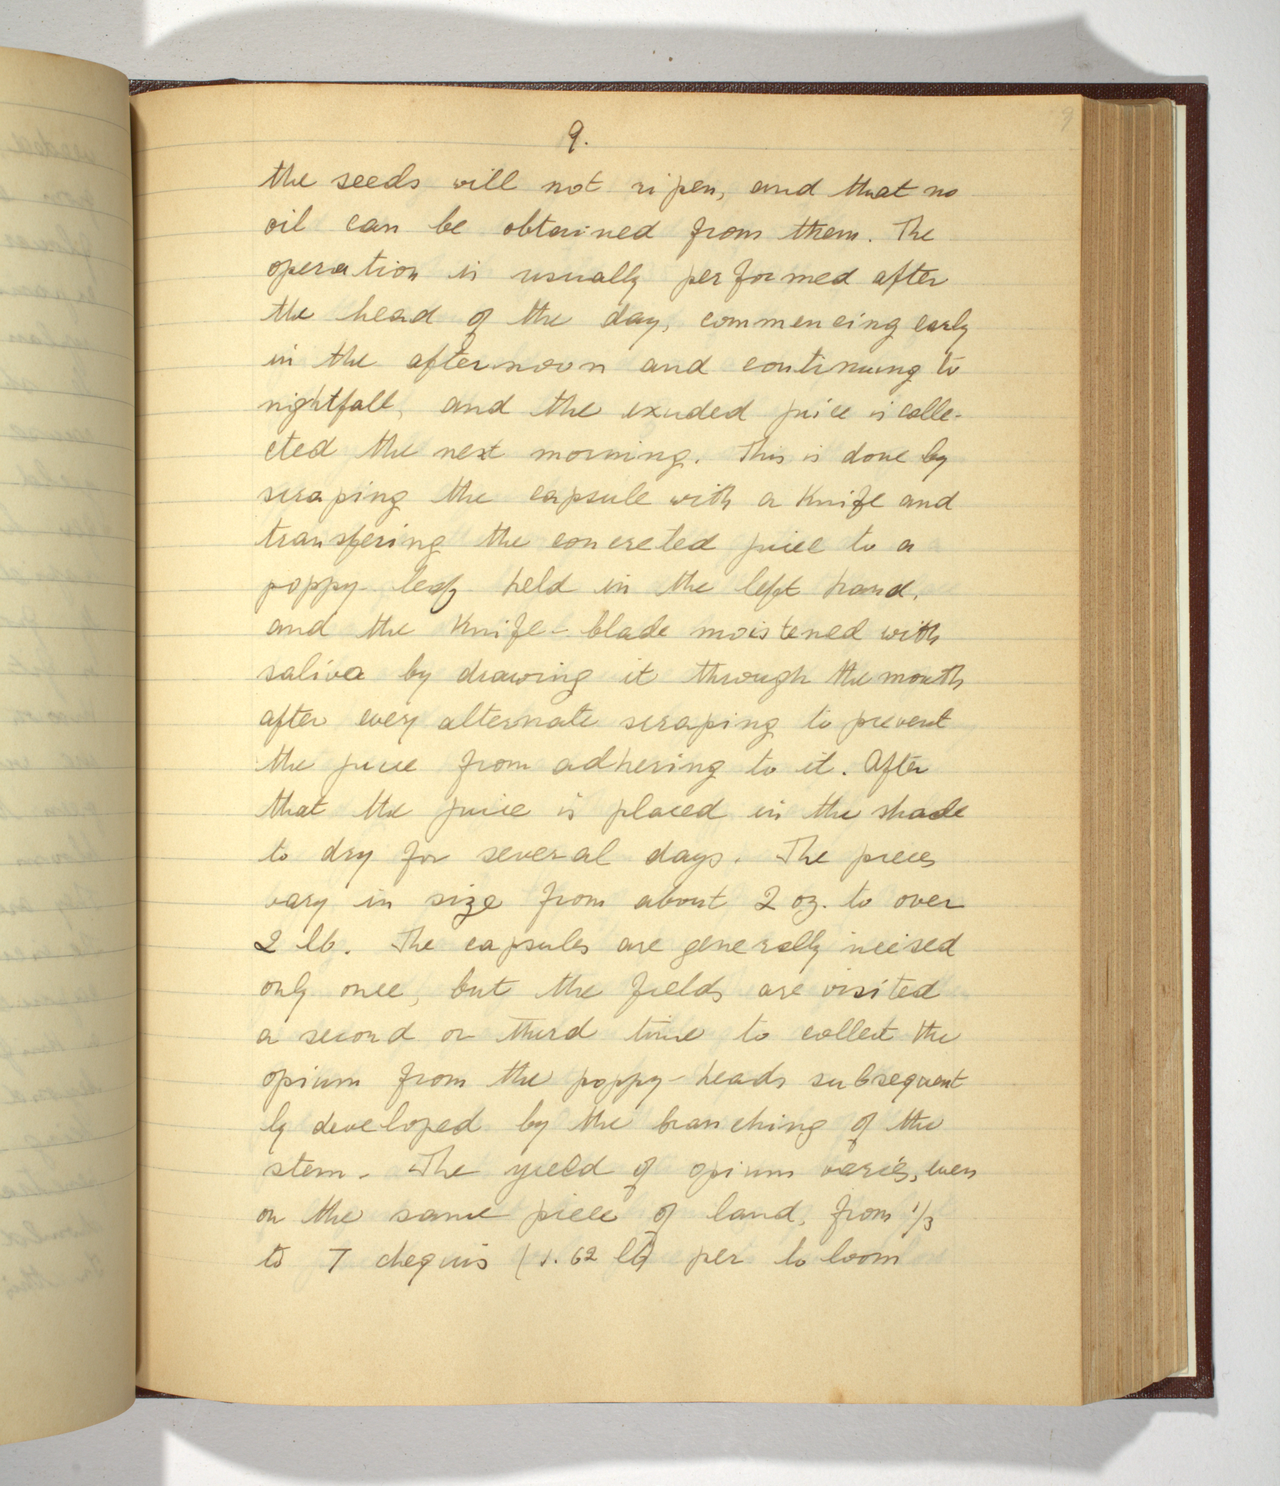 9.
the seeds will not ripen, and that no
oil can be obtained from them. The
operation is usually performed after
the head of the day, commencing early
in the afternoon and continuing to
nightfall, and the exuded juice is colle-
cted the next morning. This is done by
scraping the capsule with a knife and
transfering the concreted juice to a
poppy-leaf held in the left hand,
and the knife-blade moistened with
saliva by drawing it through the mouth
after every alternate scraping to prevent
the juice from adhering to it. After
that the juice is placed in the shade
to dry for several days. The pieces
vary in size from about 2 oz. to over
2 lb. The capsules are generally incised
only once, but the fields are visited
a second or third time to collect the
opium from the poppy-heads subsequent
ly developed by the branching of the
stem. The yield of opium varies, even
on the same piece of land, from 1/3
to 7 chequis (1.62 lb) per to loom